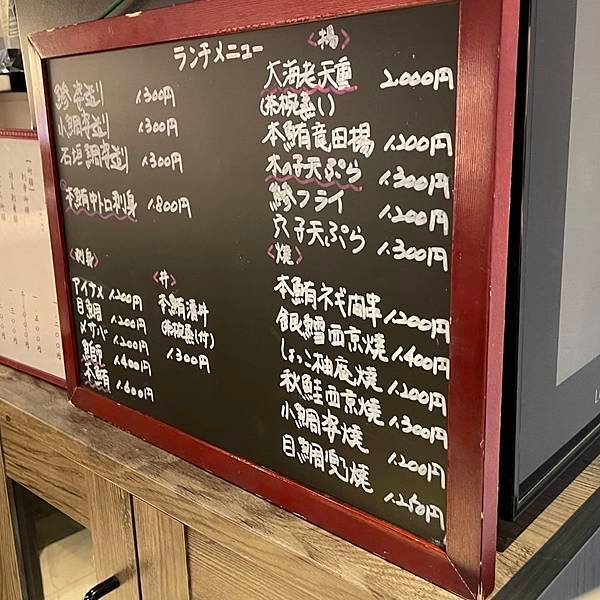 ランチメニュー
鯵姿造り 1.300円
小鯛姿造り 1.300円
石垣鯛姿造り 1.300円
本鮪中トロ刺身 1.800円
<刺身>
アイナメ 1.200円
目鯛 1.200円
〆サバ 1.200円
1.400円
本鮪 1.600円
<丼>
本鮪漬丼
(茶椀蒸し付)
1.300円
<揚>
大海老天重 2.000円
(茶椀蒸し)
本鮪竜田揚 1.200円
木の子天ぷら 1.300円
鯵フライ 1.200円
穴子天ぷら 1.300円
<焼>
本鮪ネギ間串 1.200円
銀鱈西京焼 1.400円
しょっこ柚庵焼 1.200円
秋鮭西京焼 1.300円
小鯛姿焼 1.200円
目鯛兜焼 1.250円